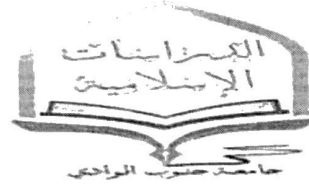 الدراسات
الإسلامية
جامعة جنوب الوادي